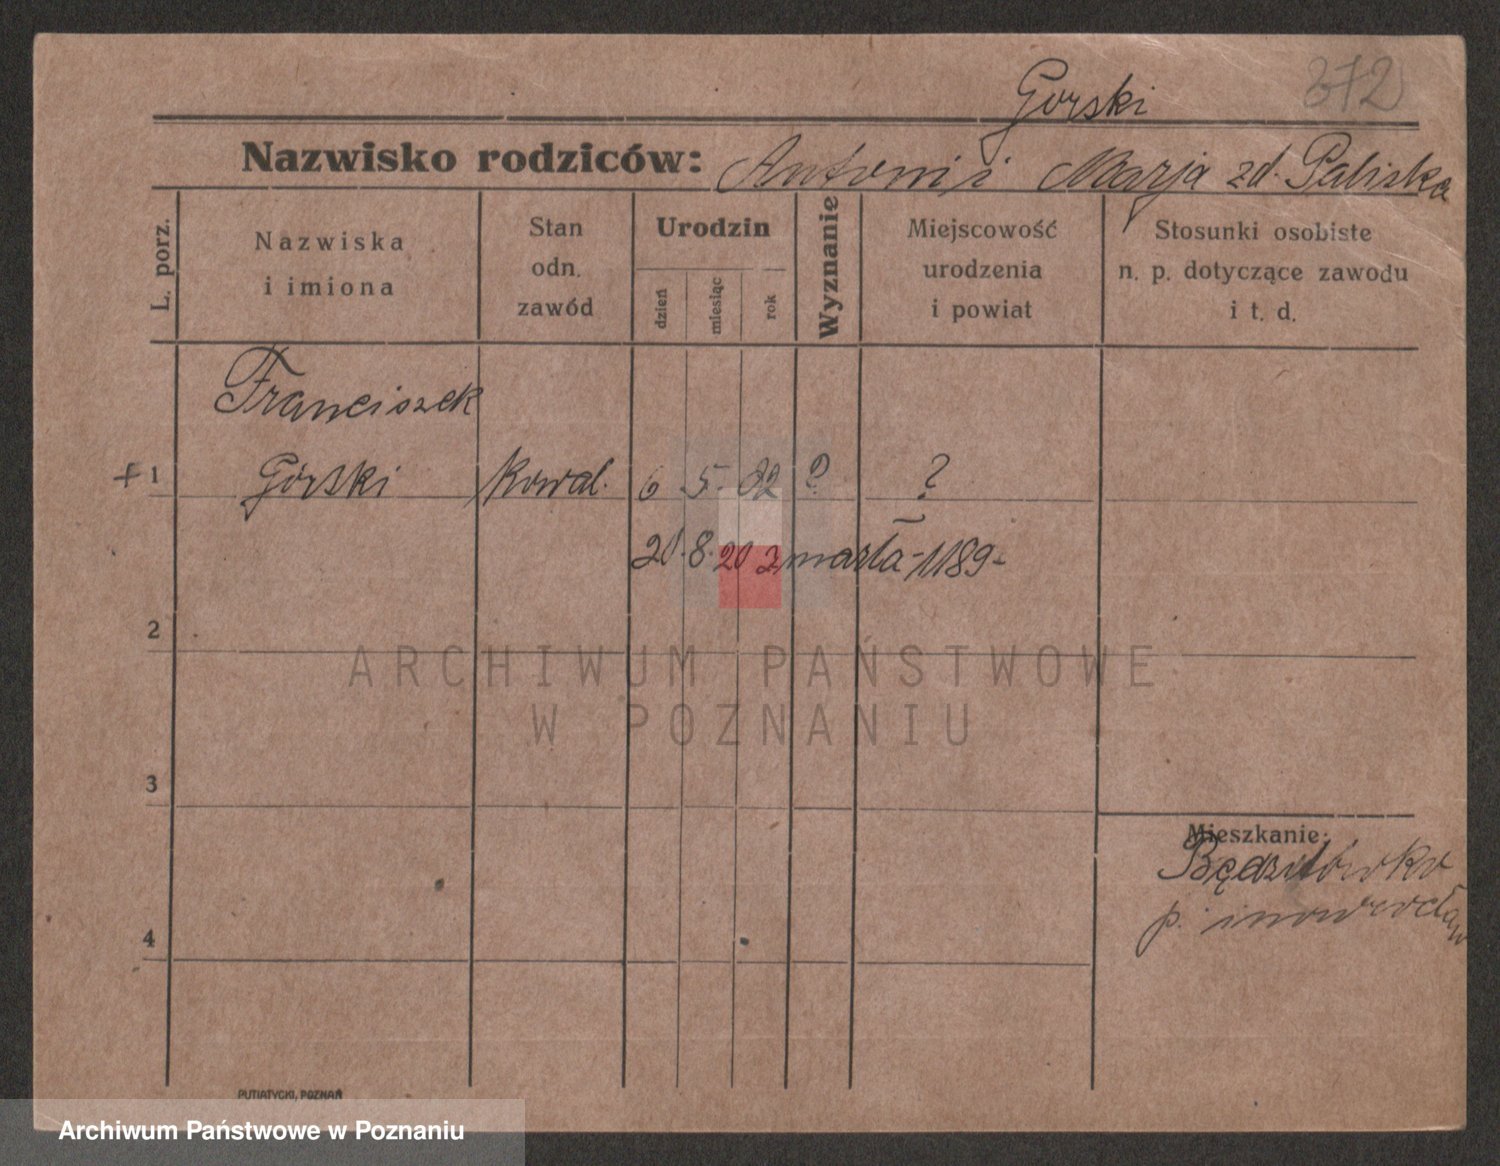 Gorski 372
Nazwisko rodziców: Antoni i Marja zd. Paliska
L. porz.
Nazwiska
i imiona
Stan
odn.
zawód
Urodzin
dzień
miesiąc
rok
Wyznanie
Miejscowość
urodzenia
i powiat
Stosunki osobiste
n. p. dotyczące zawodu
i t. d.
Franciszek
+ 1 Górski Kowal. 6 5. 82 ? ?
21. 8. 20 zmarła
2
ARCHIWUM PAŃSTWOWE
W POZNANIU
3
Mieszkanie:
p. inowrocław
4
PUTIATYCKI, POZNAŃ
Archiwum Państwowe w Poznaniu